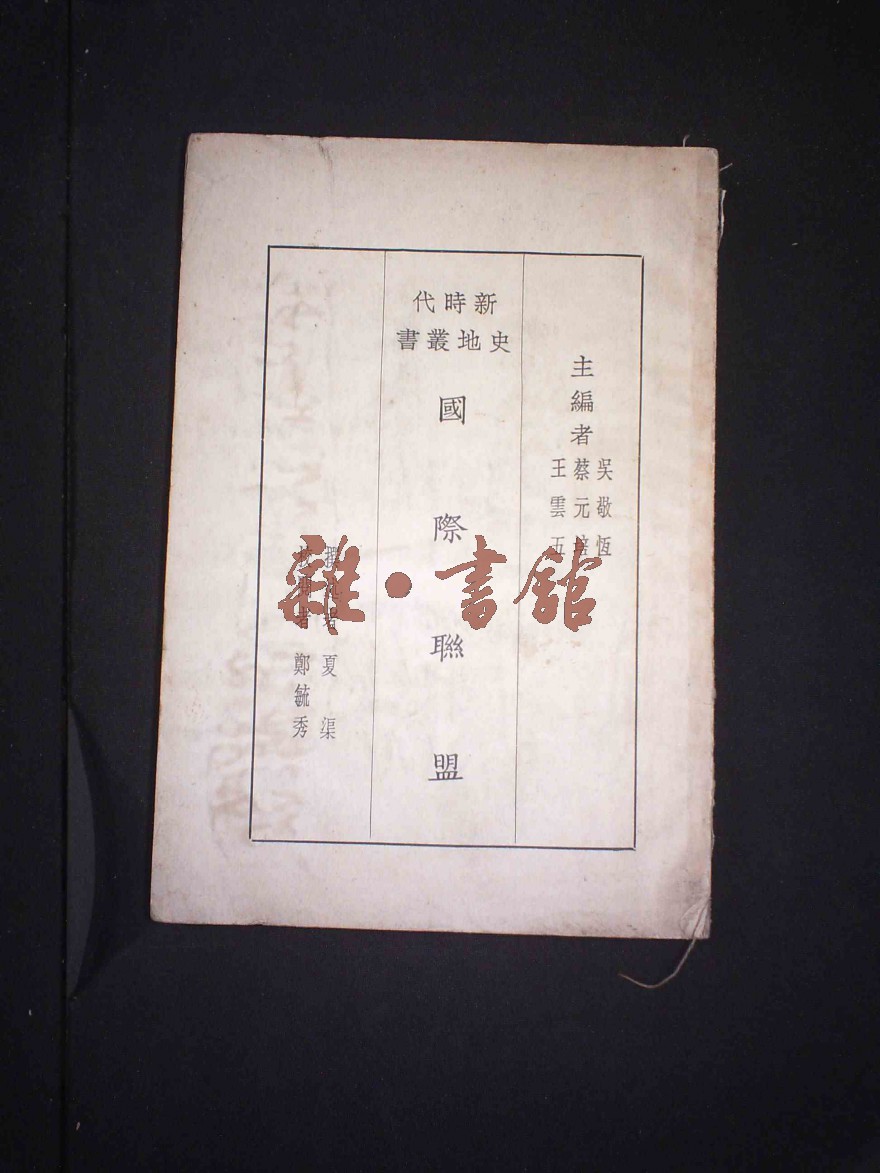 主編者
吳敬恆
蔡元培
王雲五
新時代
史地叢書
國際聯盟
撰述者 夏渠
校閱者 鄭毓秀
雜·書館